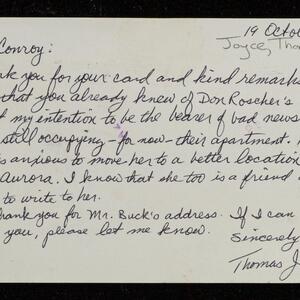 19 Octob
Joyce, Tho
Conroy:
nk you for your card and kind remarks
that you already knew of Don Roscher's
t my intention to be the bearer of bad news
still occupying - for now - their apartment.
is anxious to move her to a better location
Aurora. I know that she too is a friend
to write to her.
hank you for Mr. Buck's address. If I can
you, please let me know.
Sincerely
Thomas J